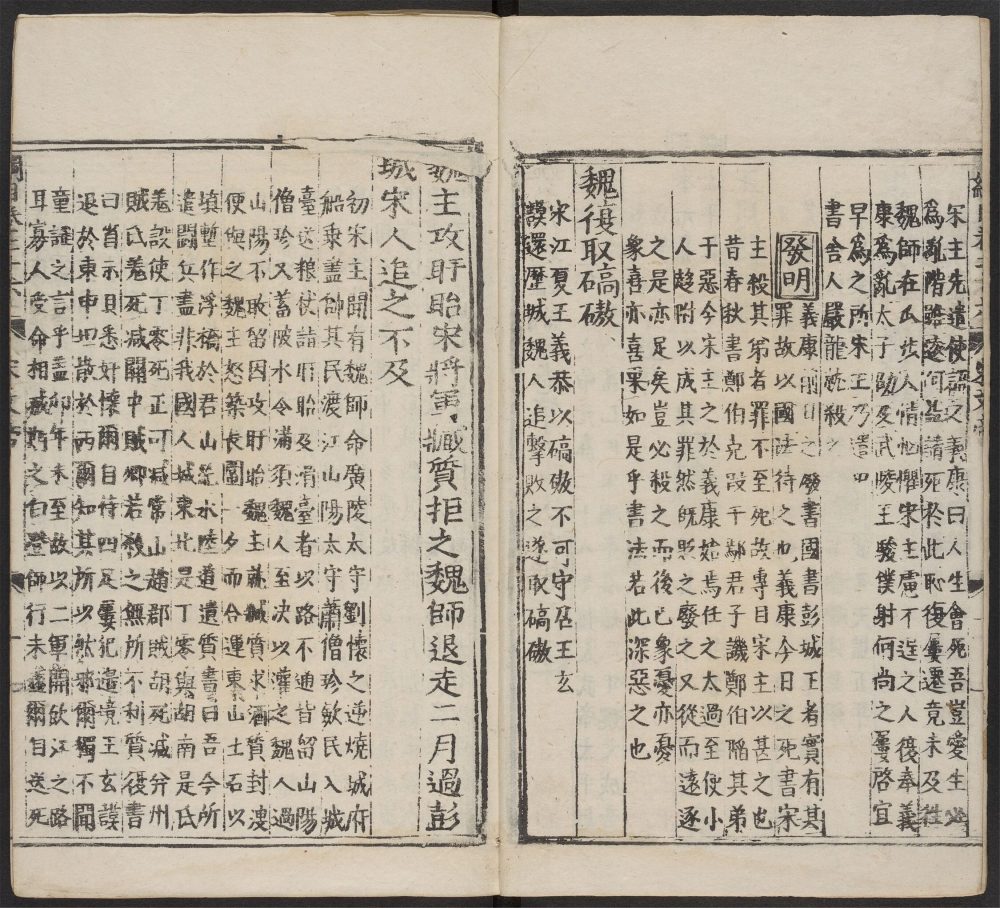 宋主先遣使語之義康曰人生會死吾豈愛生必
為亂階雖遠何益請死於此恥復屢遷竟未及往
魏師在瓜步人情忷懼宋主慮不逞之人復奉義
康為亂太子劭及武陵王駿僕射何尚之屢啓宜
早為之所宋主乃遣中
書舍人嚴龍就殺之
發明義康削日之廢書國書彭城王者實有其
罪故以國法待之也義康今日之死書宋
主殺其弟者罪不至死故專目宋主以甚之也
昔春秋書鄭伯克段于鄢君子譏鄭伯陷其弟
于惡今宋主之於義康始焉任之太過至使小
人趨附以成其罪然既貶之廢之又從而遠逐
之是亦足矣豈必殺之而後已象憂亦憂
象喜亦喜果如是乎書法若此深惡之也
魏復取碻磝
宋江夏王義恭以碻磝不可守召王玄
謨還歷城魏人追擊敗之遂取碻磝
魏主攻盱眙宋將軍臧質拒之魏師退走二月過彭
城宋人追之不及
初宋主聞有魏師命廣陵太守劉懷之逆燒城府
船乗盡帥其民渡江山陽太守蕭僧珍敛民入城
臺送粮仗詣盱眙及滑臺者以路不通皆留山陽
僧珍又蓄陂水令滿須魏人至决以灌之魏人過
山陽不敢留因攻盱眙魏主就臧質求酒質封溲
便與之魏主怒築長圍一夕而合運東山土石以
填塹作浮橋於君山絶水陸道遺質書曰吾今所
遣鬬兵盡非我國人城東北是丁零與胡南是氐
羌設使丁零死正可减常山趙郡賊胡死减并州
賊氐羌死减關中賊卿若殺之無所不利質復書
曰省示具悉奸懷爾自恃四足屢犯邉境王玄謨
退於東申坦散於西爾知其所以然邪爾獨不聞
童謠之言乎蓋卯年未至故以二軍開飲江之路
耳寡人受命相滅期之白登師行未遠爾自送死